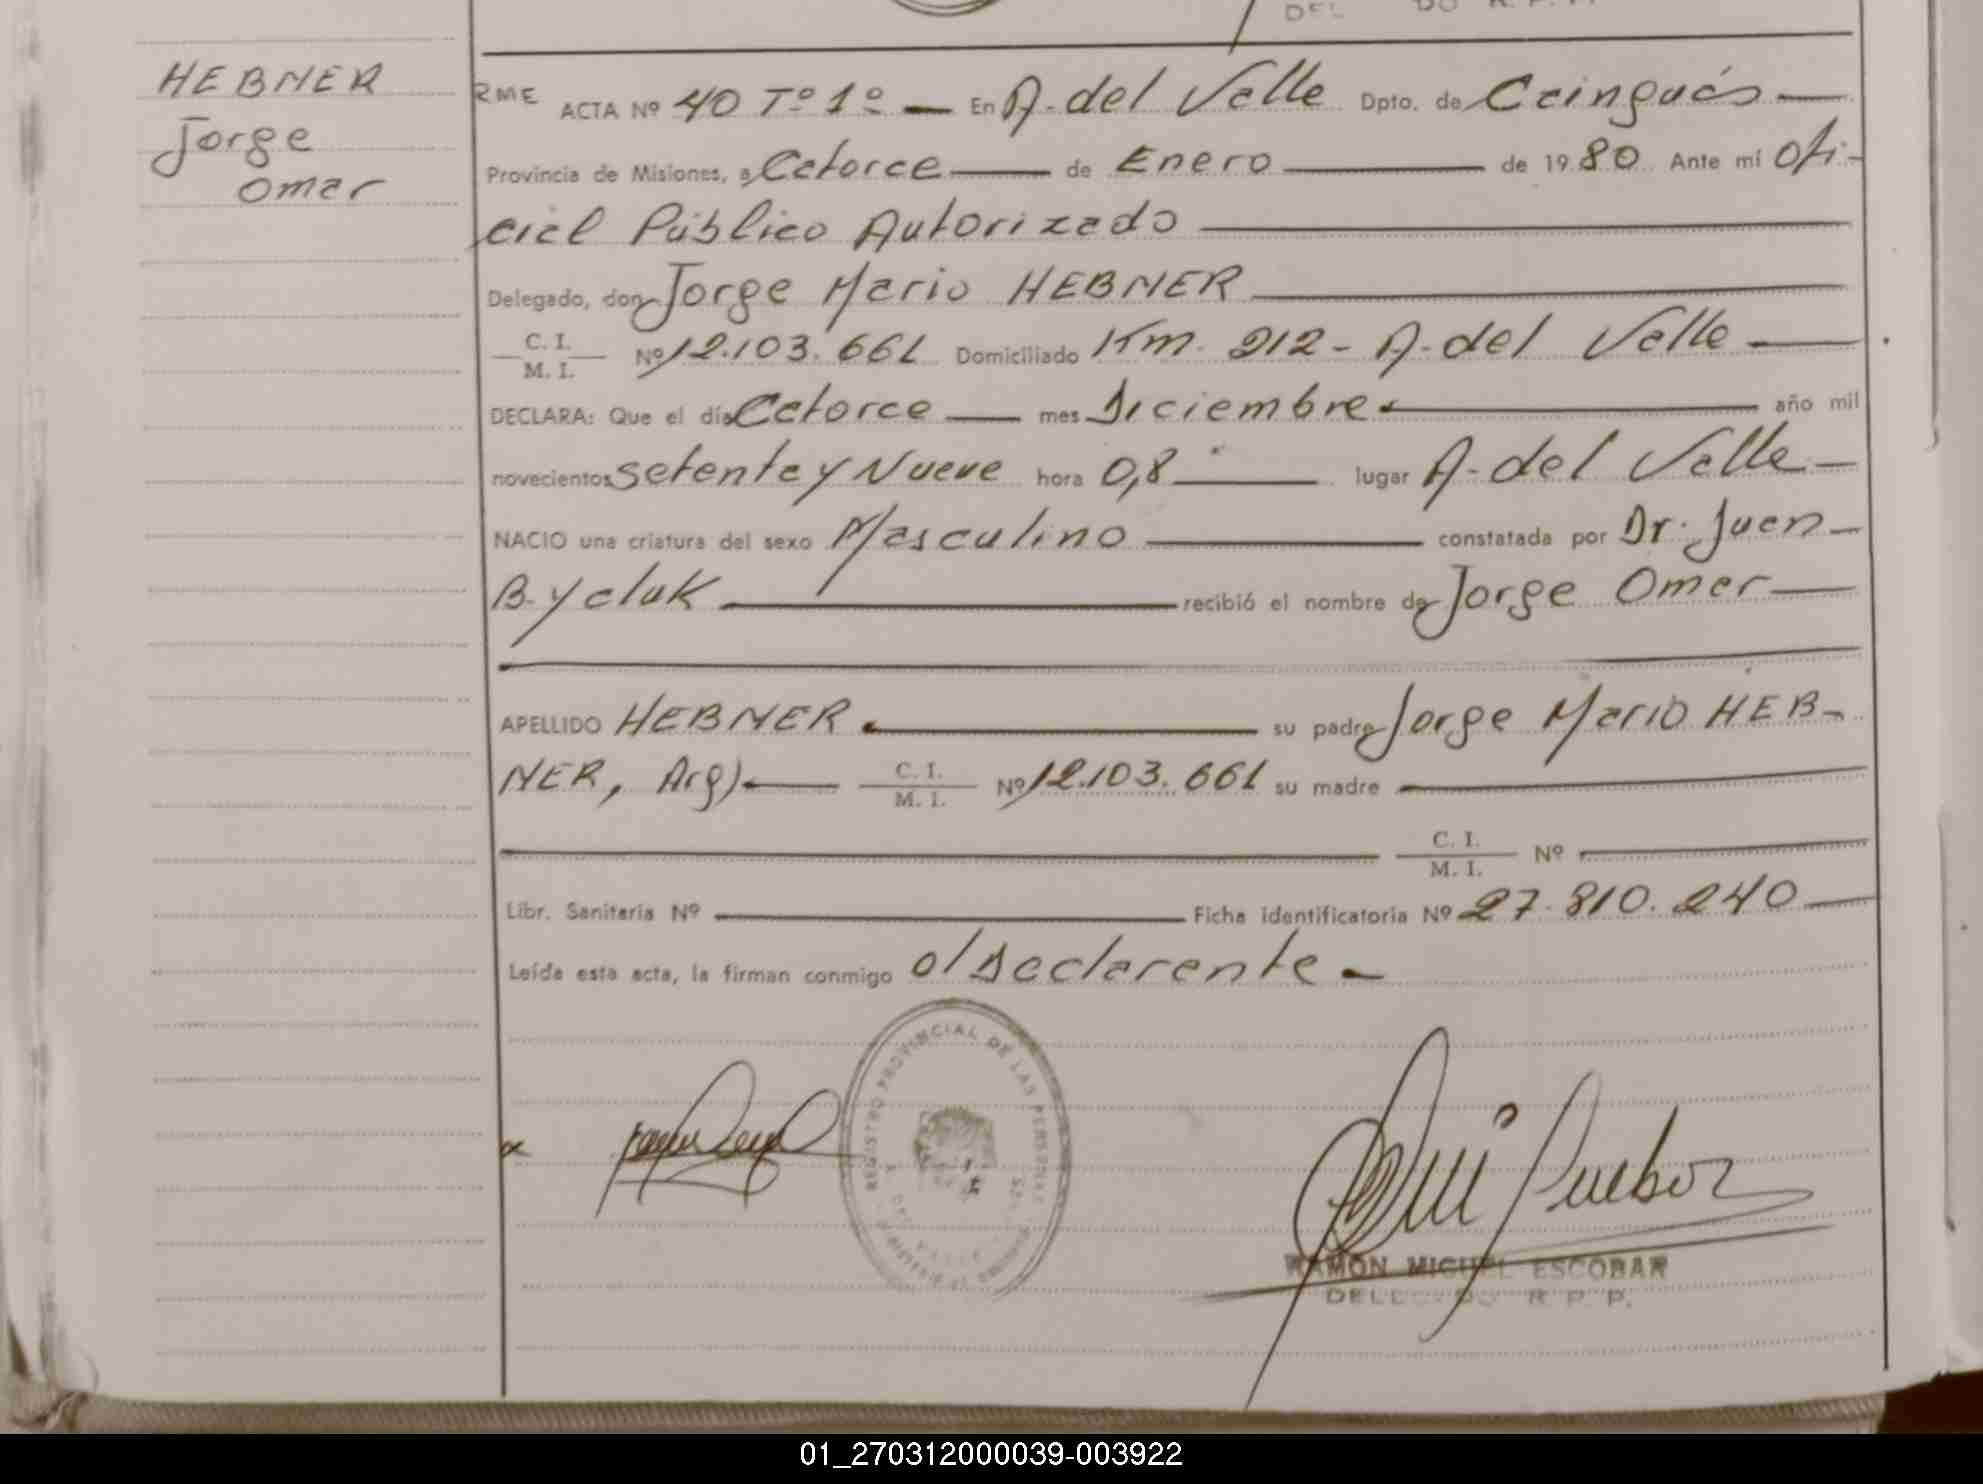 DEL DO R.P.P.
HEBNER
Jorge
Omar
RME ACTA Nº 40 Tº 1º — En A. del Valle Dpto. de Cainguás —
Provincia de Misiones, a Catorce — de Enero — de 1980 Ante mí Ofi-
cial Público Autorizado —
Delegado, don Jorge Mario HEBNER —
C. I.
M. I. Nº 12.103.661 Domiciliado Km. 212 - A. del Valle —
DECLARA: Que el día Catorce — mes Diciembre — año mil
novecientos setenta y Nueve hora 0,8 — lugar A. del Valle —
NACIO una criatura del sexo Masculino — constatada por Dr. Juan —
B. yaluk — recibió el nombre de Jorge Omar —
APELLIDO HEBNER — su padre Jorge Mario HEB-
NER, Arg) — C. I.
M. I. Nº 12.103.661 su madre —
C. I.
M. I. Nº —
Libr. Sanitaria Nº — Ficha identificatoria Nº 27.810.240 —
Leída esta acta, la firman conmigo el declarante —
REGISTRO PROVINCIAL DE LAS PERSONAS
A. DEL VALLE
RAMON MIGUEL ESCOBAR
DELEGADO R.P.P.
01_270312000039-003922